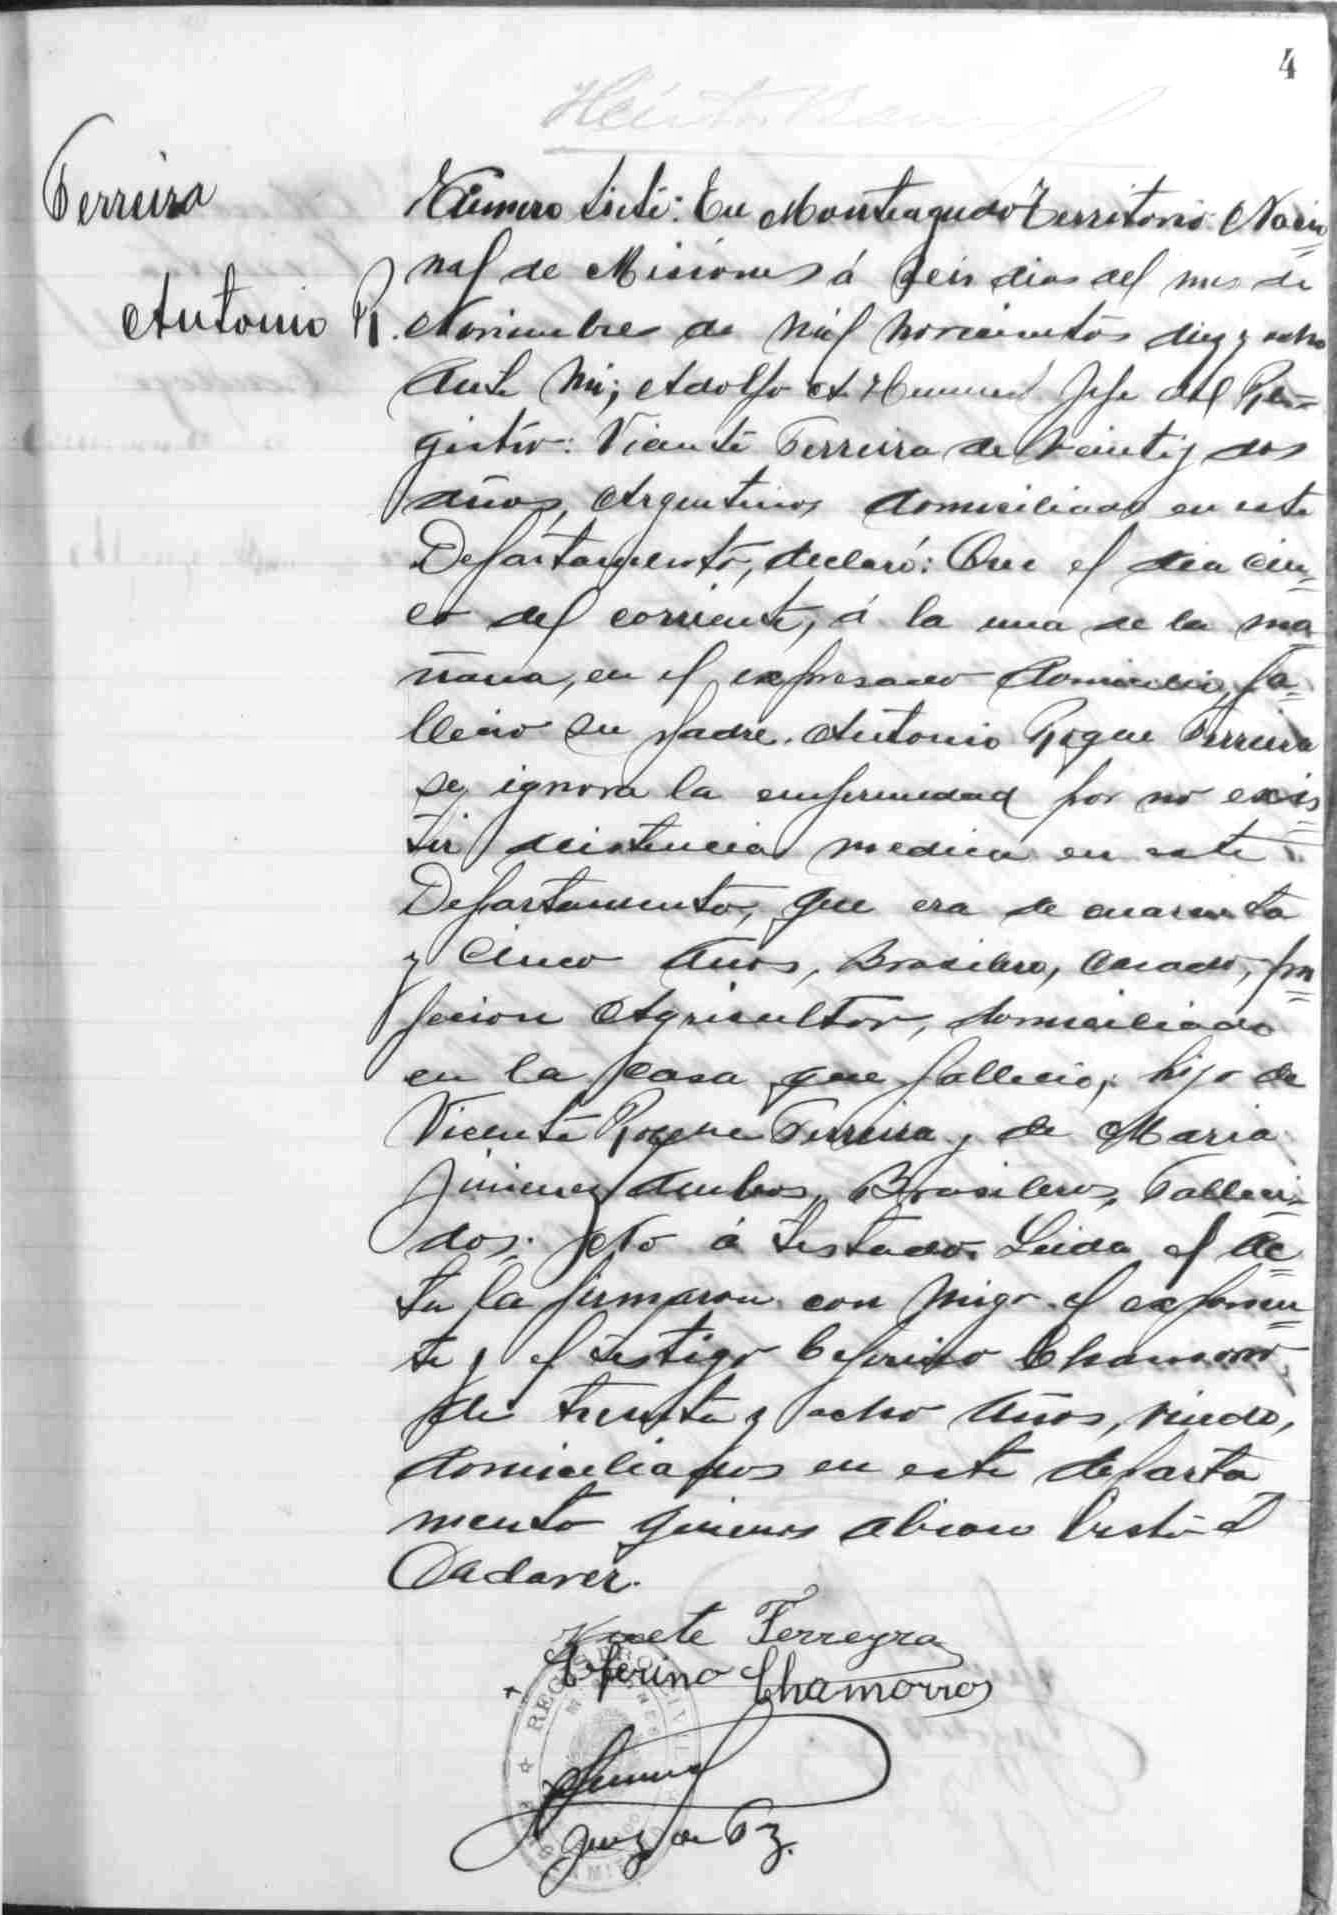 4
Ferreira
Antonio R.
Número siete: En Monteagudo Territorio Nacio
nal de Misiones á seis dias del mes de
Noviembre de mil novecientos diez y ocho
Ante Mi; Adolfo A. Jefe del Re=
gistro: Vicente Ferreira de veinti y dos
años, Argentino, domiciliado en este
Departamento, declaró: Que el dia cin=
co del corriente, á la una de la ma
ñana, en el expresado domicilio, fa=
llecio su padre. Antonio Roque Ferreira
se ignora la enfermedad por no exis
tir asistencia medica en este
Departamento, que era de cuarenta
y cinco años, Brasilero, Casado, pro
fecion Agricultor, domiciliado
en la casa que fallecio, hijo de
Vicente Roque Ferreira y de Maria
Jimenez ambos Brasileros, Falleci=
dos. No á testado. Leida el Ac
ta la firmaron con migo el exponen
te y el testigo Ceferino Chamorro,
de treinta y ocho años, viudo,
domiciliados en este departa
mento quienes
Cadaver.
Vicete Ferreyra
Ceferino Chamorro
REGISTRO CIVIL
MISIONES
Juez de Paz.